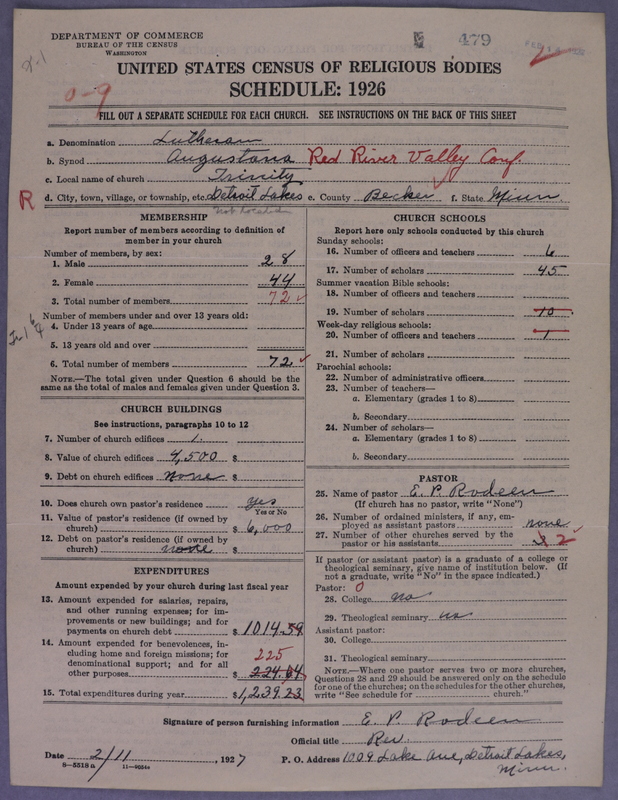 DEPARTMENT OF COMMERCE
BUREAU OF THE CENSUS
WASHINGTON
479
UNITED STATES CENSUS OF RELIGIOUS BODIES
SCHEDULE: 1926
0-9
FILL OUT A SEPARATE SCHEDULE FOR EACH CHURCH. SEE INSTRUCTIONS ON THE BACK OF THIS SHEET
a. Denomination Lutheran
b. Synod Augustana Red River Valley Conf.
c. Local name of church Trinity
R d. City, town, village, or township, etc. Detroit Lakes e. County Becker f. State Minn.
MEMBERSHIP
Report number of members according to definition of
member in your church
Number of members, by sex:
1. Male 28
2. Female 44
3. Total number of members 72
Number of members under and over 13 years old:
4. Under 13 years of age
5. 13 years old and over
6. Total number of members 72
NOTE.—The total given under Question 6 should be the
same as the total of males and females given under Question 3.
CHURCH BUILDINGS
See instructions, paragraphs 10 to 12
7. Number of church edifices 1.
8. Value of church edifices 4,500 $
9. Debt on church edifices none $
10. Does church own pastor's residence? yes
Yes or No
11. Value of pastor's residence (if owned by
church) $ 6,000
12. Debt on pastor's residence (if owned by
church) none $
EXPENDITURES
Amount expended by your church during last fiscal year
13. Amount expended for salaries, repairs,
and other running expenses; for im-
provements or new buildings; and for
payments on church debt $ 1014.59
14. Amount expended for benevolences, in-
cluding home and foreign missions; for
denominational support; and for all
other purposes 225 $ 224.64
15. Total expenditures during year $ 1,239.23
CHURCH SCHOOLS
Report here only schools conducted by this church
Sunday schools:
16. Number of officers and teachers 6
17. Number of scholars 45
Summer vacation Bible schools:
18. Number of officers and teachers
19. Number of scholars 10
Week-day religious schools:
20. Number of officers and teachers 1
21. Number of scholars
Parochial schools:
22. Number of administrative officers
23. Number of teachers—
a. Elementary (grades 1 to 8)
b. Secondary
24. Number of scholars—
a. Elementary (grades 1 to 8)
b. Secondary
PASTOR
25. Name of pastor E. P. Rodeen
(If church has no pastor, write "None")
26. Number of ordained ministers, if any, em-
ployed as assistant pastors none
27. Number of other churches served by the
pastor or his assistants 2
If pastor (or assistant pastor) is a graduate of a college or
theological seminary, give name of institution below. (If
not a graduate, write "No" in the space indicated.)
Pastor: 0
28. College no
29. Theological seminary no
Assistant pastor:
30. College
31. Theological seminary
NOTE.—Where one pastor serves two or more churches,
Questions 28 and 29 should be answered only on the schedule
for one of the churches; on the schedules for the other churches,
write "See schedule for church."
Signature of person furnishing information E. P. Rodeen
Official title Rev.
Date 2/11, 1927 P. O. Address 1009 Lake Ave, Detroit Lakes,
Minn.
8—5518 a 11—9054a